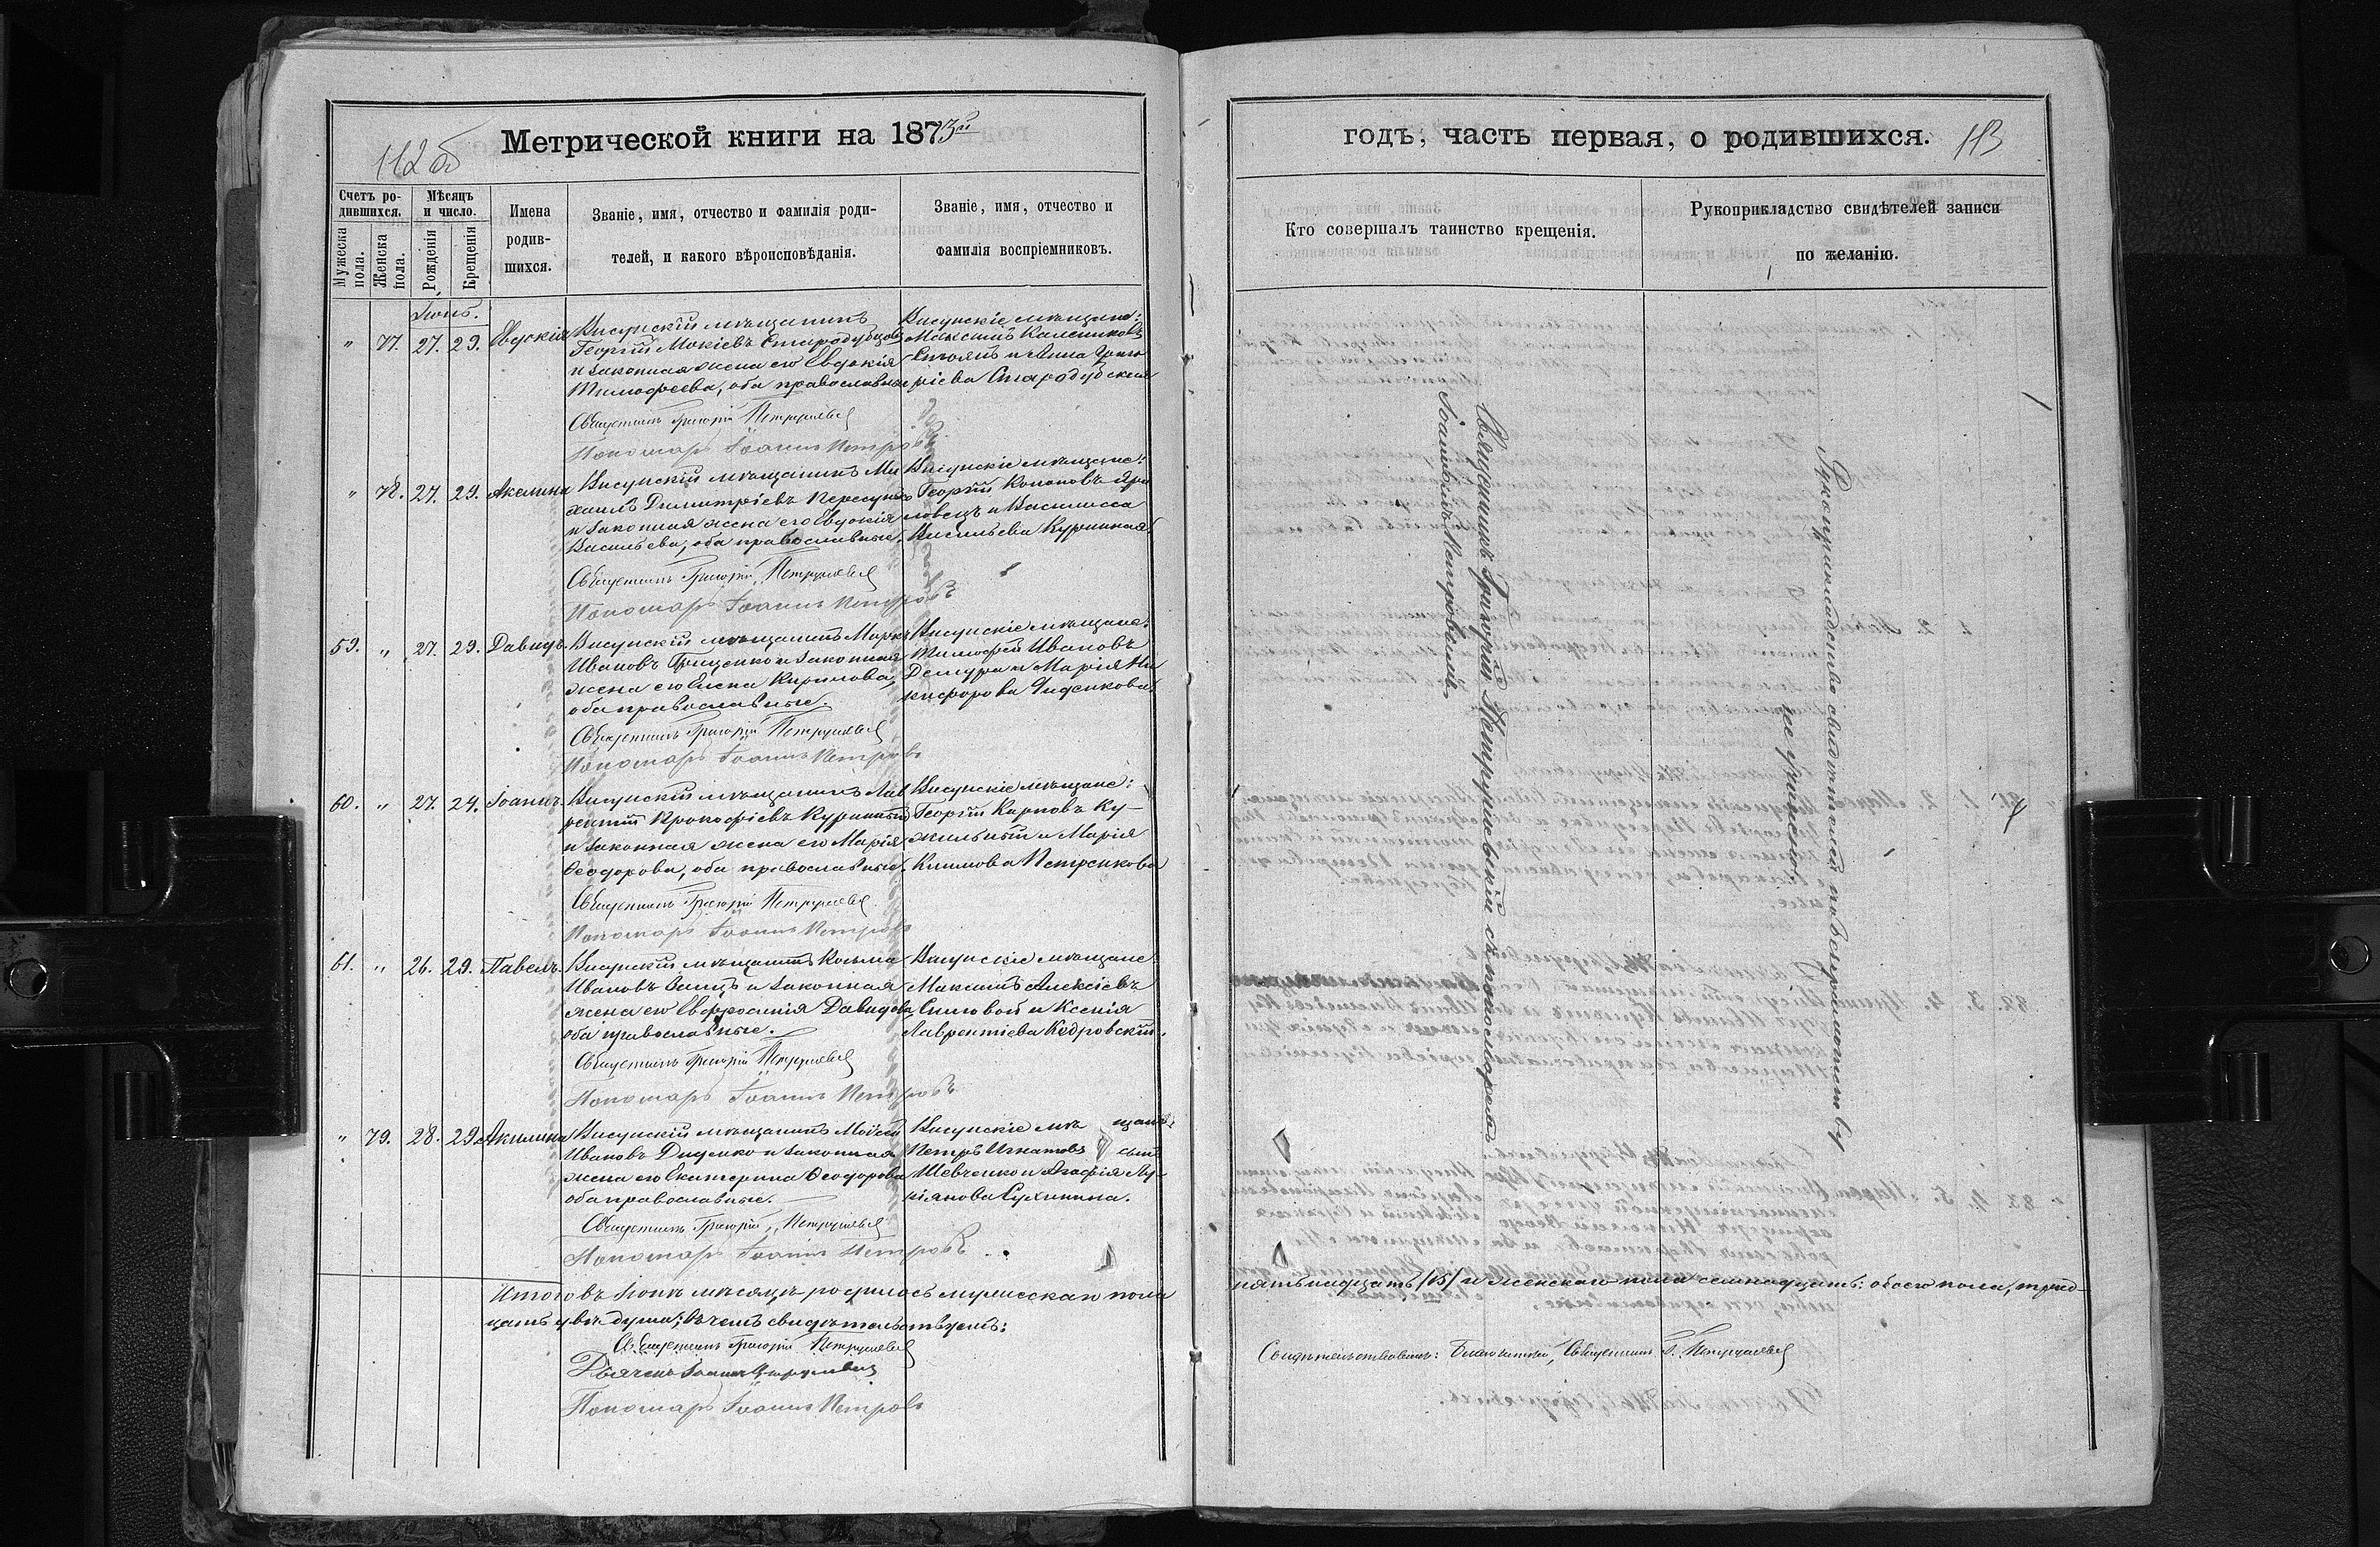 Метрической книги на 1873й
112 об
Счетъ ро-
дившихся.
Мѣсяцъ
и число.
Мужеска
пола.
Женска
пола.
Рожденія
Крещенія
Имена
родив-
шихся.
Званіе, имя, отчество и фамилія роди-
телей, и какого вѣроисповѣданія.
Званіе, имя, отчество и
фамилія воспріемниковъ.
Іюнь.
„ 77. 27. 29. Евдокія
Висунскій мѣщанинъ
Георгій Мокіевъ Стародубцовъ
и законная жена его Евдокія
Тимофеева, оба православные
Висунскіе мѣщане:
Максимъ
и Анна Григо
ріева Стародубская
Священникъ Григорій Петрушевскій
Пономарь Іоаннъ Петровъ
„ 78. 27. 29. Акелина
Висунскій мѣщанинъ Ми
хаилъ Димитріевъ
и законная жена его Евдокія
Васильева, оба православные.
Висунскіе мѣщане:
Георгій Кононовъ
и Василисса
Васильева Куринная.
Священникъ Григорій Петрушевскій
Пономарь Іоаннъ Петровъ
59. „ 27. 29. Давидъ.
Висунскій мѣщанинъ Марко
Ивановъ Грищенко и законная
жена его Елена Кирилова,
оба православные.
Висунскіе мѣщане:
Тимофей Ивановъ
и Марія Ни
кифорова Диденкова.
Священникъ Григорій Петрушевскій
Пономарь Іоаннъ Петровъ
60. „ 27. 29. Іоаннъ.
Висунскій мѣщанинъ Лав
рентій Прокофіевъ Куринный
и законная жена его Марія
Ѳеодорова, оба православные.
Висунскіе мѣщане:
Георгій Карповъ Ку-
жильный и Марія
Климова Петренкова
Священникъ Григорій Петрушевскій
Пономарь Іоаннъ Петровъ
61. „ 26. 29. Павелъ.
Висунскій мѣщанинъ Козьма
Ивановъ и законная
жена его Евфросинія Давидова,
оба православные.
Висунскіе мѣщане:
Максимъ Алексіевъ
и Ксенія
Лаврентіева Кодровскій.
Священникъ Григорій Петрушевскій
Пономарь Іоаннъ Петровъ
„ 79. 28. 29. Акилина
Висунскій мѣщанинъ Моисей
Ивановъ Диденко и законная
жена его Екатерина Ѳеодорова
оба православные.
Висунскіе мѣщане:
Петръ Игнатовъ сынъ
Шевченко и Агафія Лу-
кіянова Сухинина.
Священникъ Григорій Петрушевскій
Пономарь Іоаннъ Петровъ
Итого въ Іюнѣ мѣсяцѣ родилось мужескаго пола
цать двѣ души; въ чемъ свидѣтельствуемъ:
Священникъ Григорій Петрушевскій
Дьячекъ Іоаннъ
Пономарь Іоаннъ Петровъ
годъ, часть первая, о родившихся.
113
Кто совершалъ таинство крещенія.
Рукоприкладство свидѣтелей записи
по желанію.
Священникъ Григорій Петрушевскій съ пономаремъ
Іоанномъ Петровымъ
Рукоприкладство свидѣтелей
не учинено.
пятьнадцать /15/ и женскаго пола семнадцать: обоего пола, трид-
Свидѣтельствовалъ: Благочинный, Священникъ Г. Петрушевскій